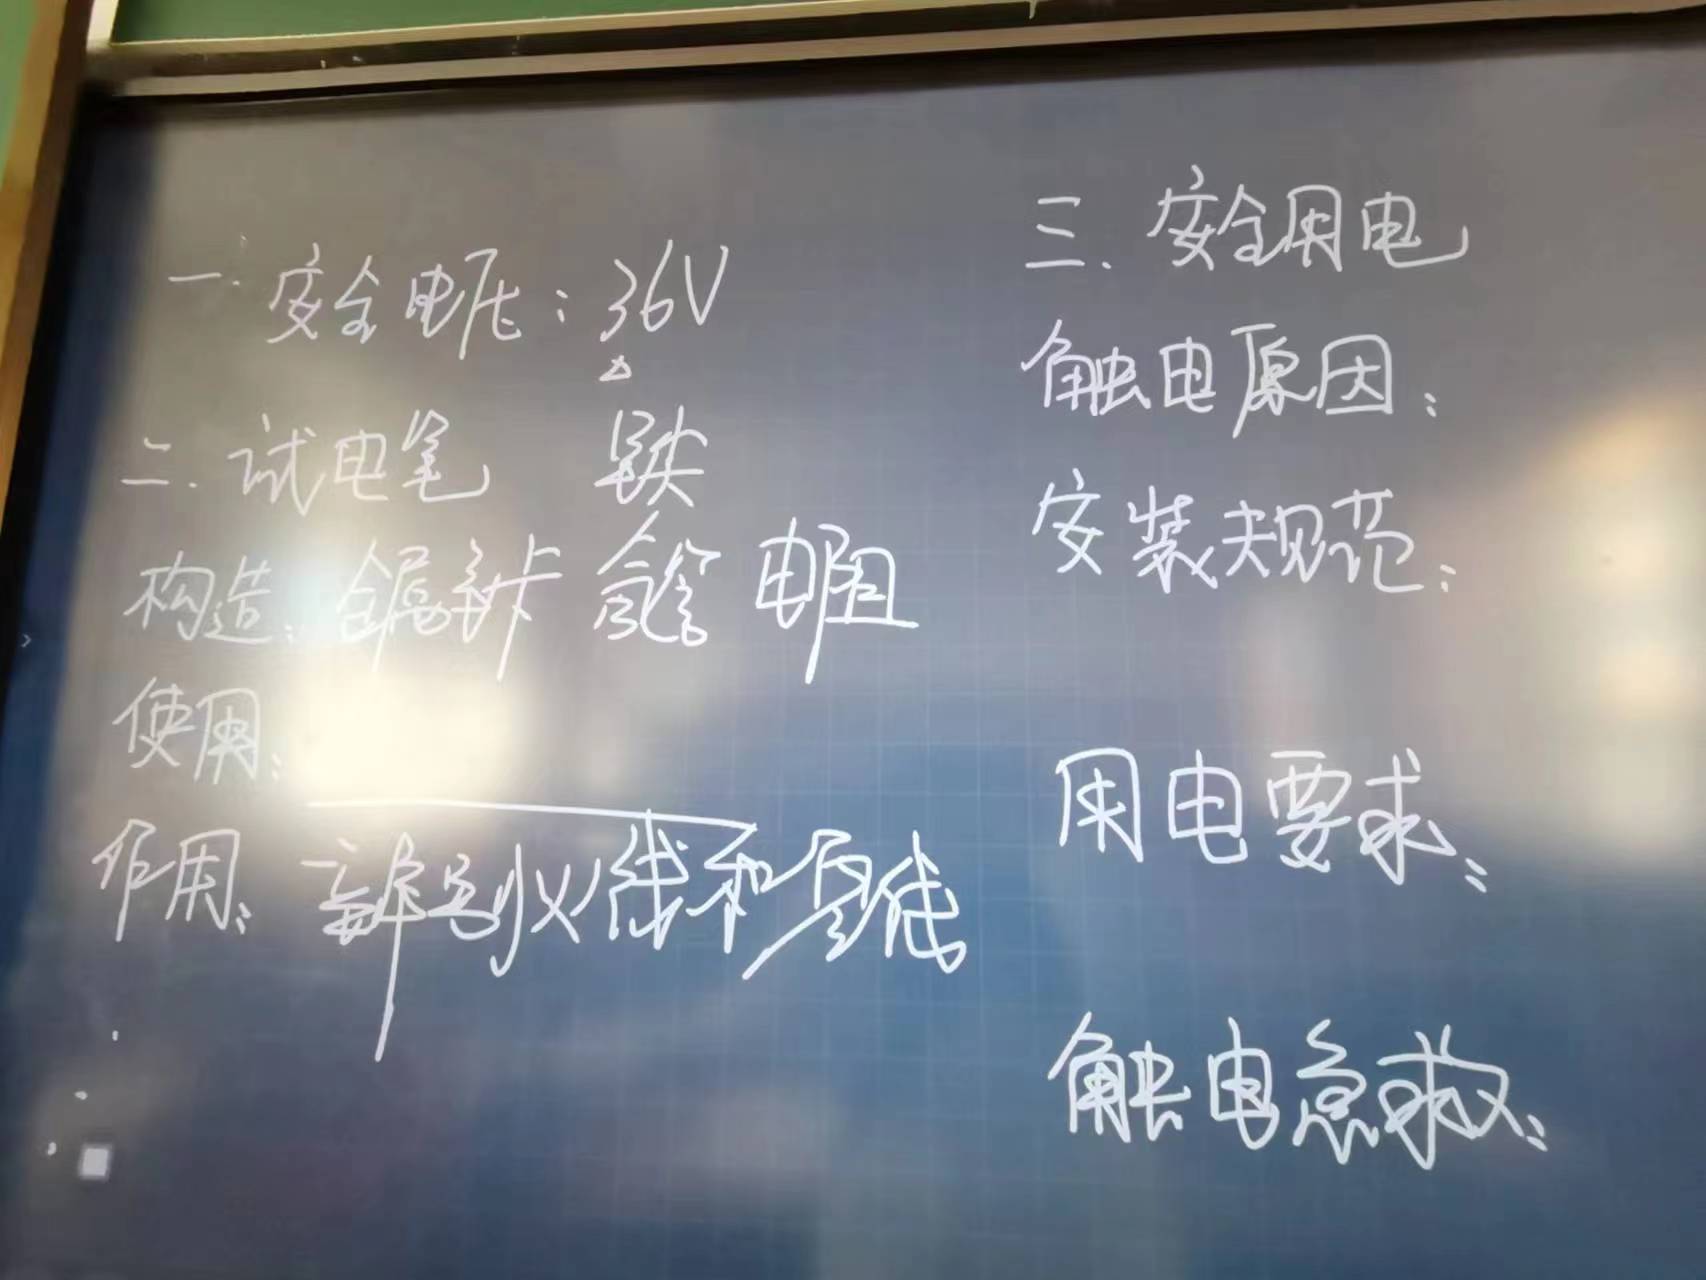 一. 安全电压：36V
二. 试电笔
构造：金属卡 氖管 电阻
使用：
作用：辨别火线和零线
三. 安全用电
触电原因：
安装规范：
用电要求：
触电急救：